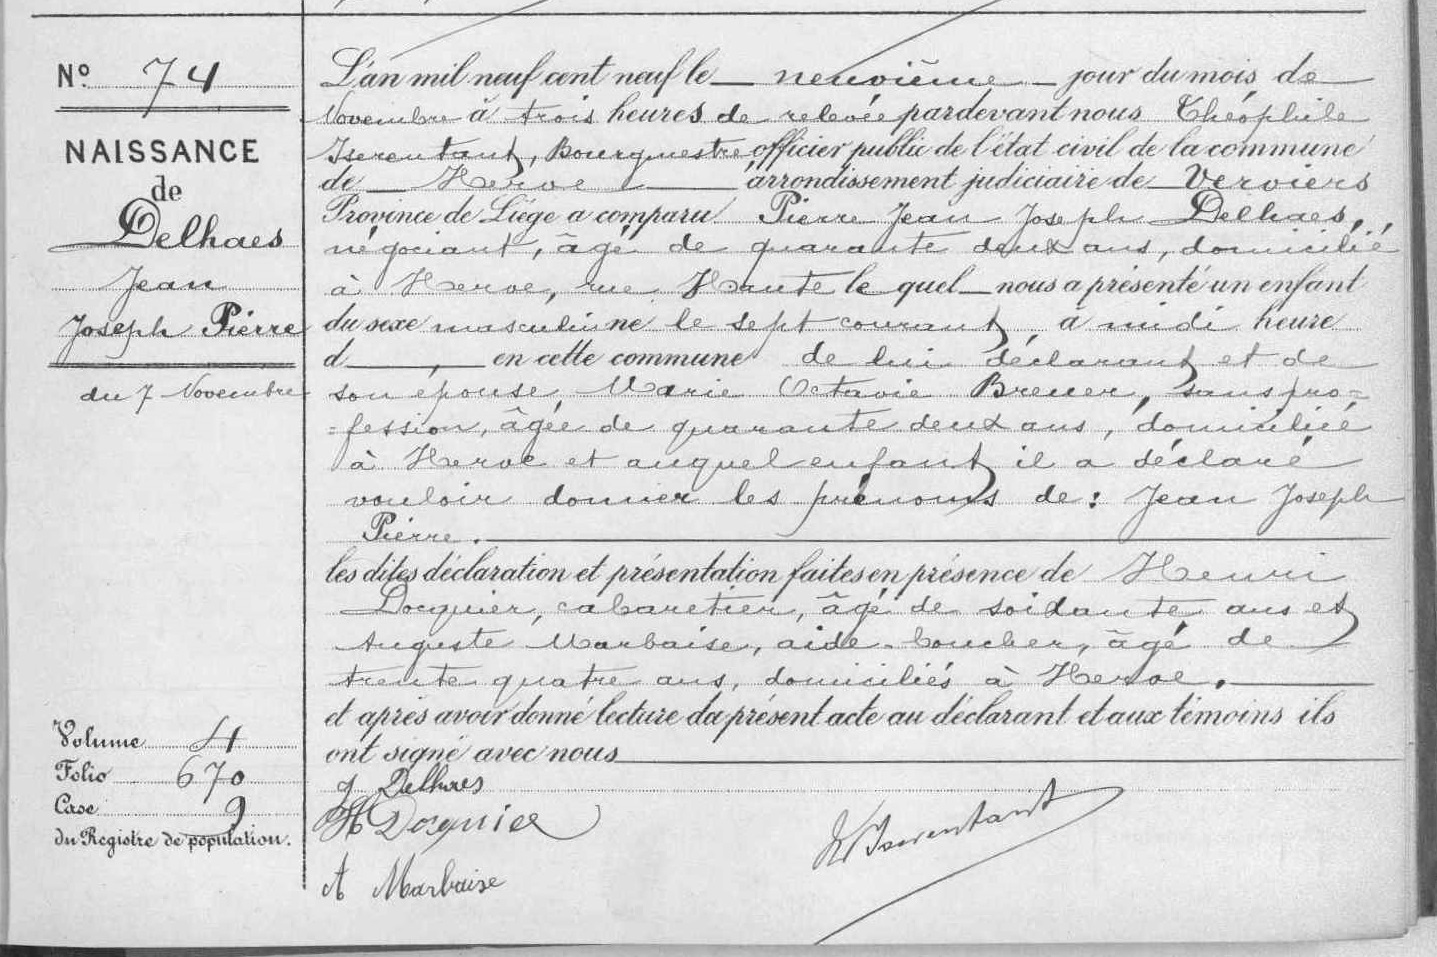 N° 74
NAISSANCE
de
Delhaes
Jean
Joseph Pierre
du 7 Novembre
Volume 4
Folio 670
Case 9
du Registre de population.
L'an mil neuf cent neuf le neuvième jour du mois de
Novembre à trois heures de relevée pardevant nous Théophile
Iserentant, Bourgmestre officier public de l'état civil de la commune
de Herve arrondissement judiciaire de Verviers
Province de Liége a comparu Pierre Jean Joseph Delhaes,
négociant, âgé de quarante deux ans, domicilié
à Herve, rue Haute le quel nous a présenté un enfant
du sexe masculin né le sept courant, à midi heure
d , en cette commune de lui déclarant et de
son épouse Marie Octavie Breuer, sans pro=
=fession, âgée de quarante deux ans, domiciliée
à Herve et auquel enfant il a déclaré
vouloir donner les prénoms de: Jean Joseph
Pierre.
les dites déclaration et présentation faites en présence de Henri
Docquier, cabaretier, âgé de soixante ans et
Auguste Marbaise, aide-boucher, âgé de
trente quatre ans, domiciliés à Herve.
et après avoir donné lecture du présent acte au déclarant et aux témoins ils
ont signé avec nous
J Delhaes
H Docquier
Iserentant
A Marbaise